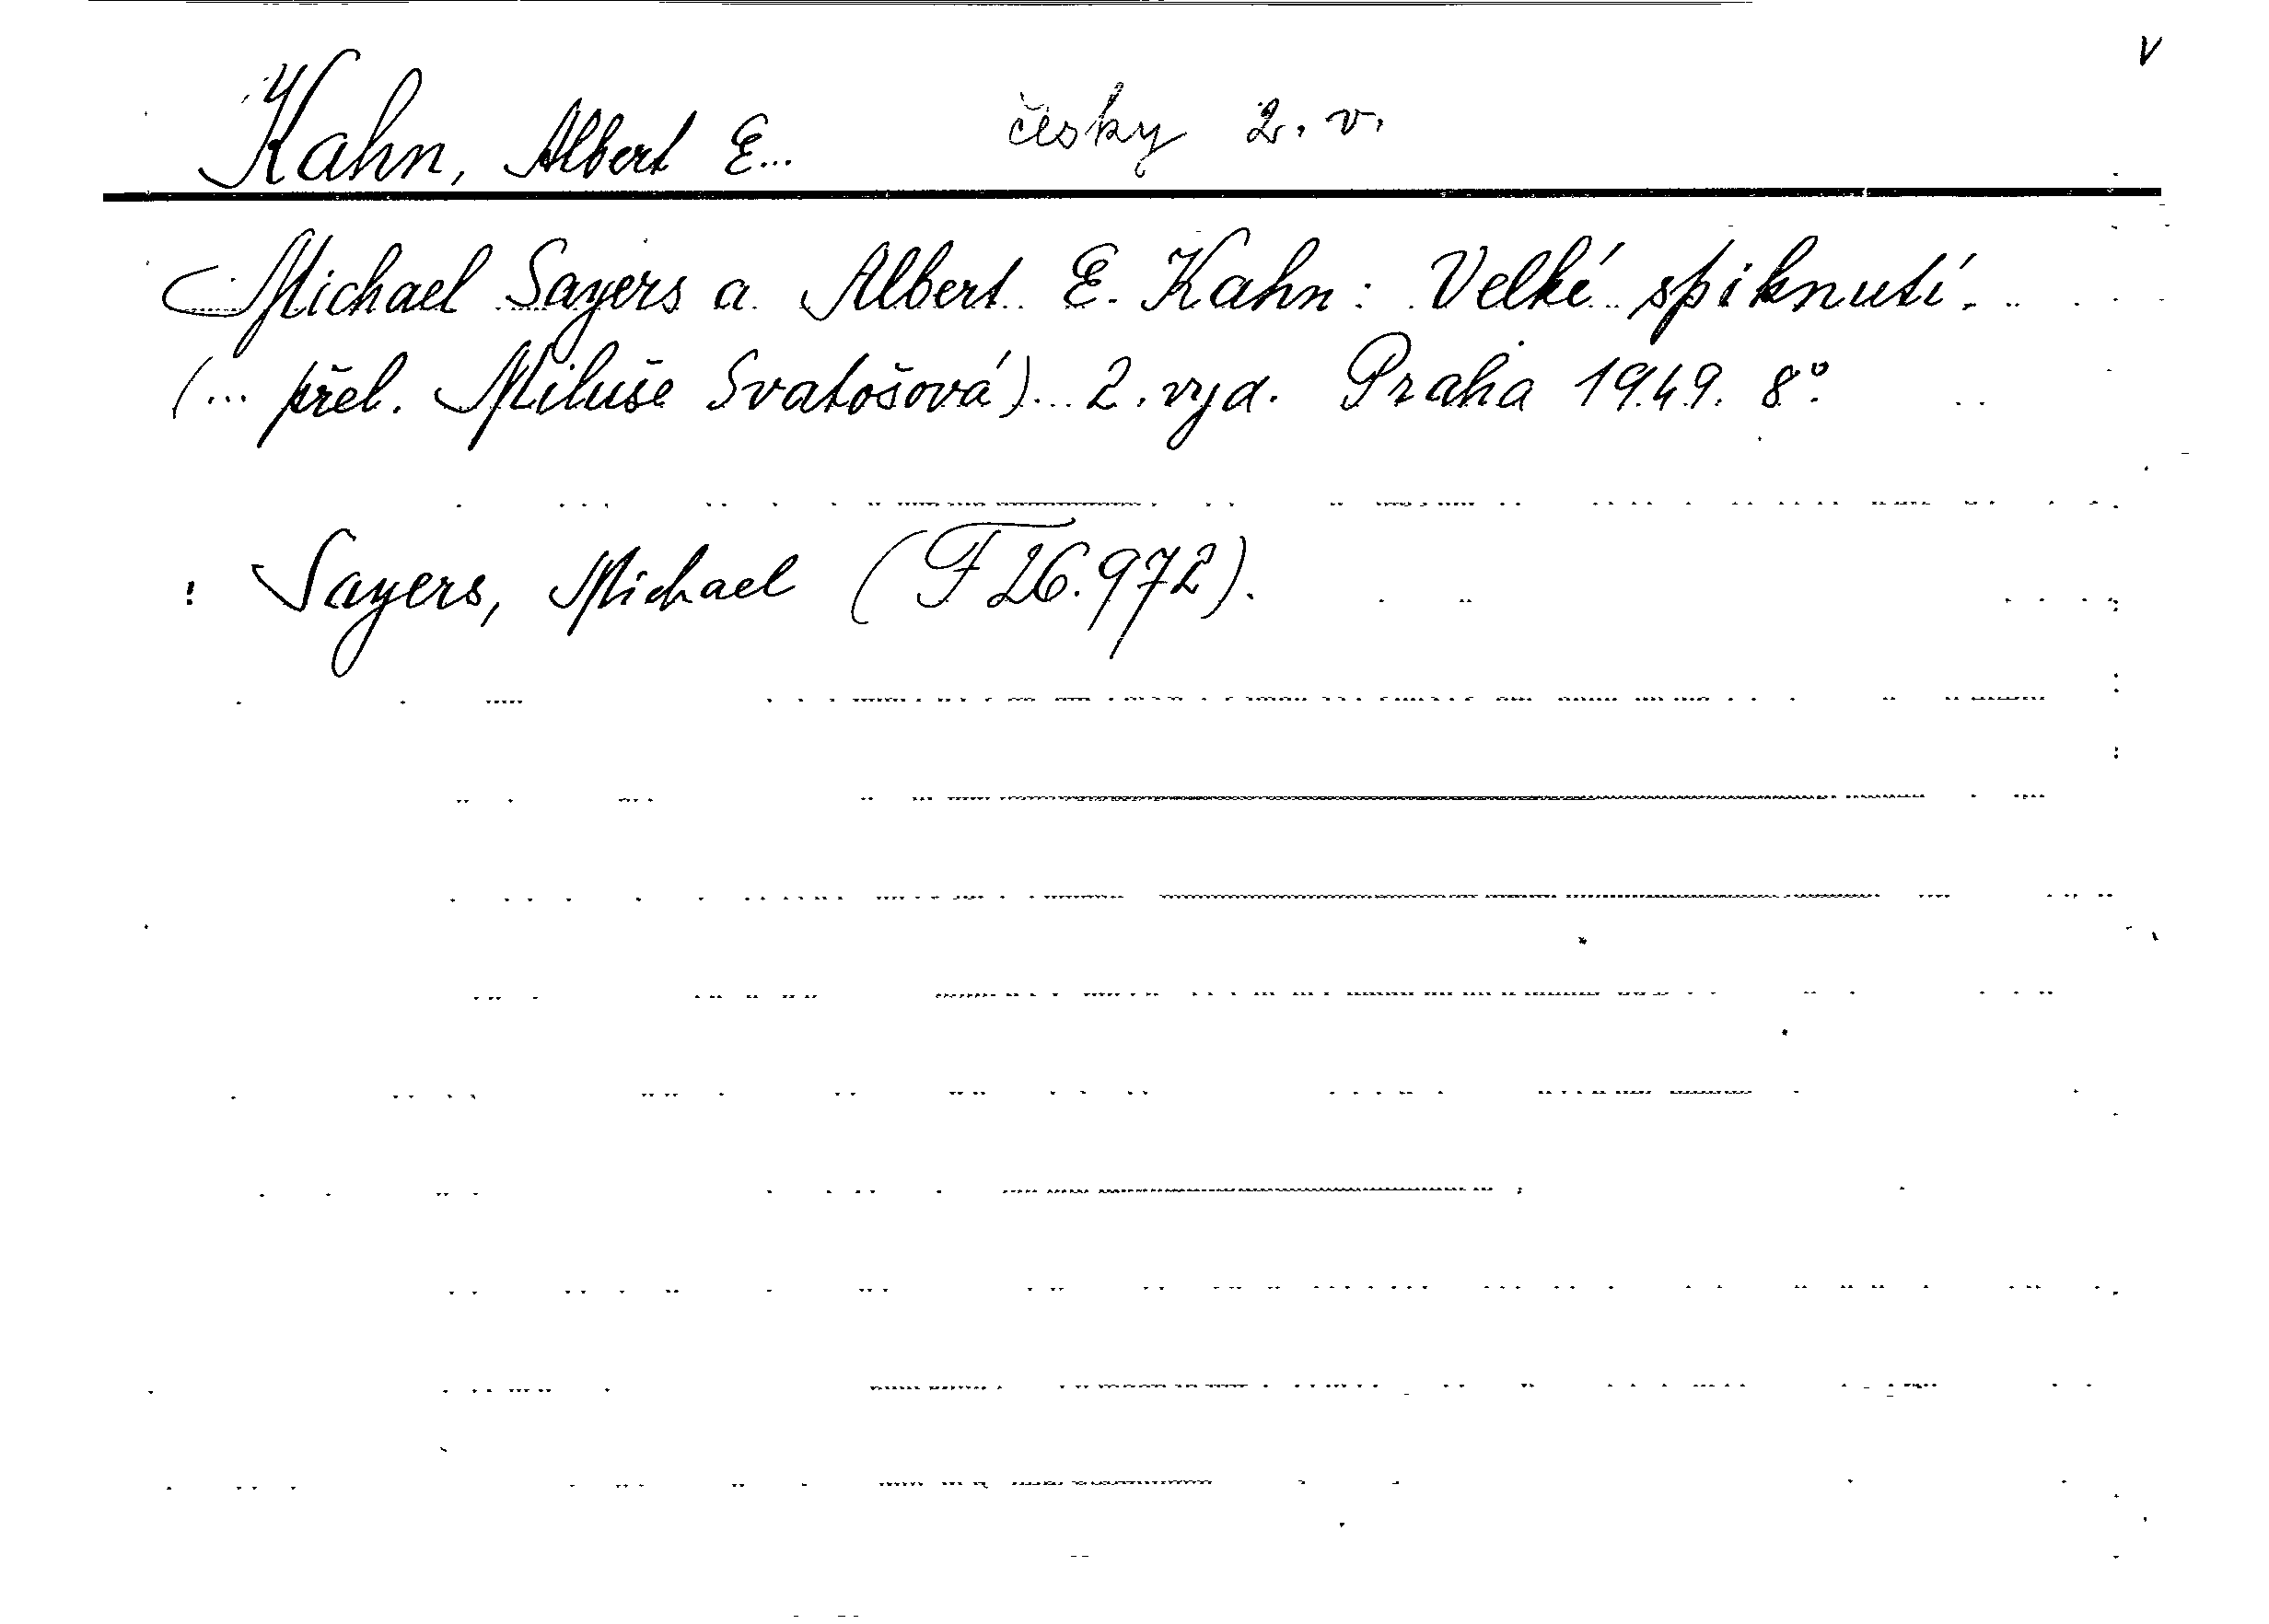 v
Kahn, Albert E... česky 2. v.
Michael Sayers a Albert E. Kahn: Velké spiknutí.
(... přel. Miluše Svatošová)... 2. vyd. Praha 1949. 8°.
: Sayers, Michael (F 26.972).